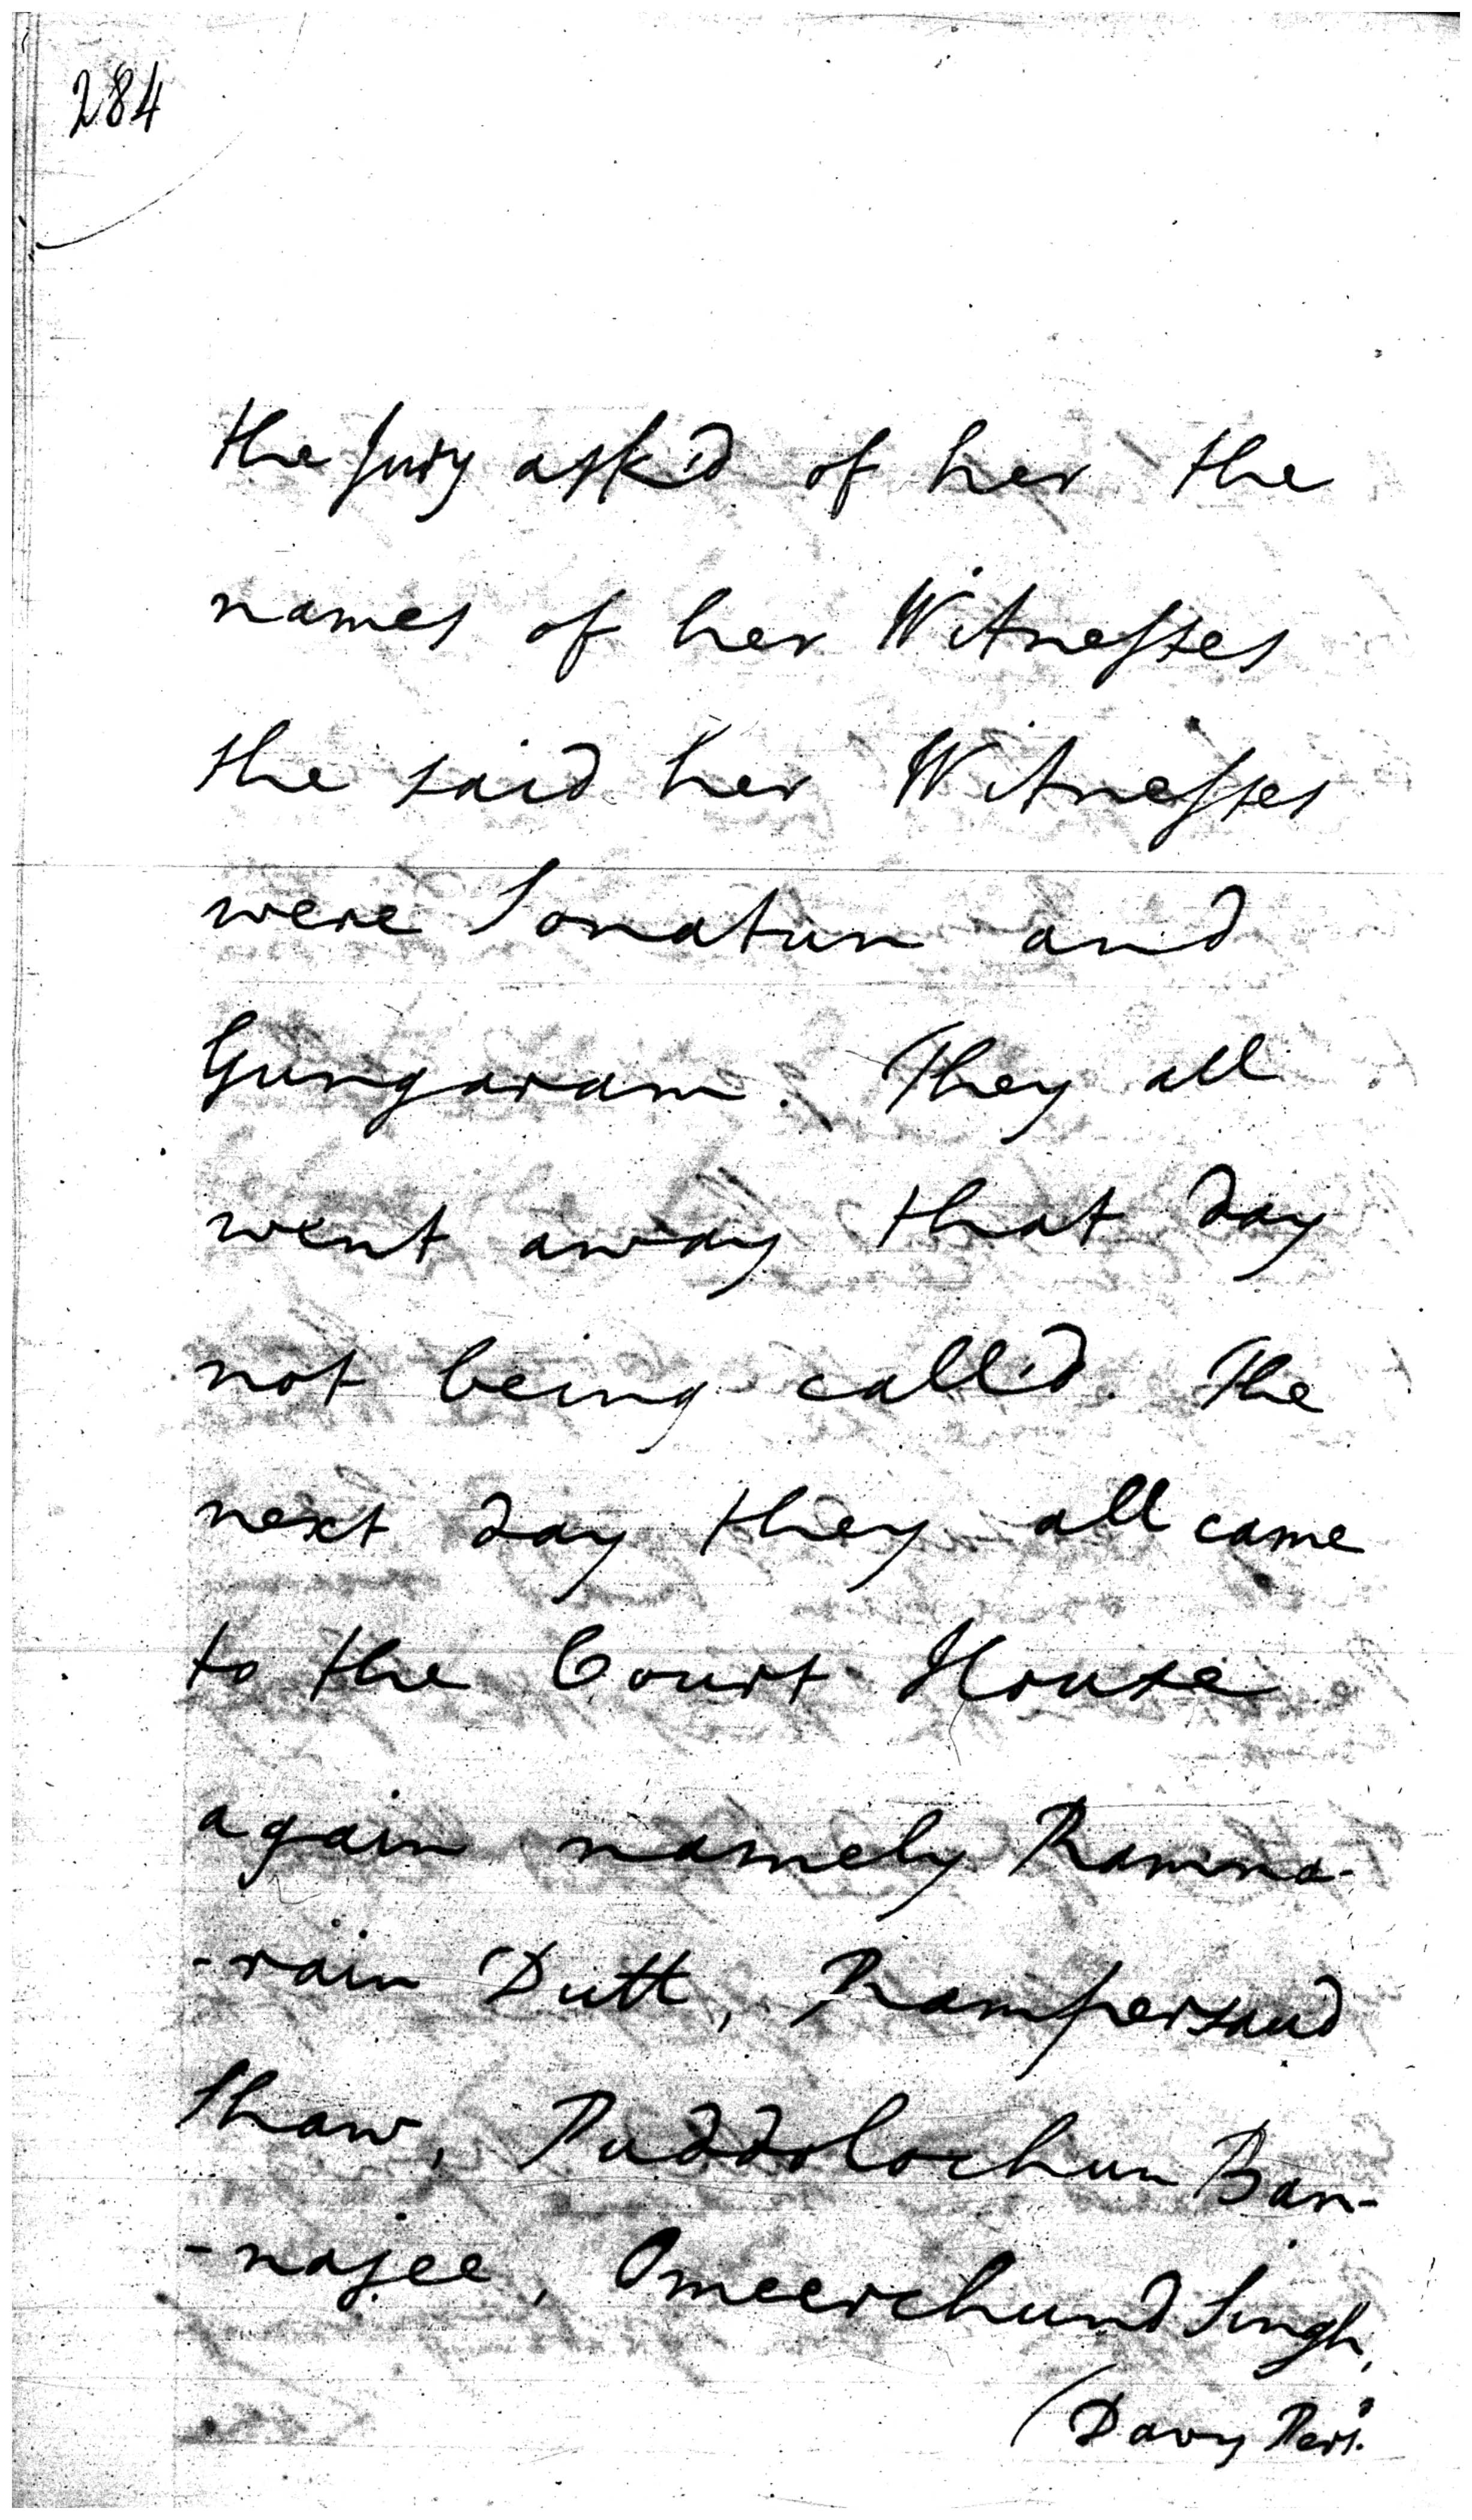 284
the Jury ask'd of her the
names of her Witnesses
she said her Witnesses
were Sonatun and
Gungaram. They all
went away that day
not being call'd. The
next day they all came
to the Court House
again namely Ramna-
-rain Dutt, Rampersaud
Shaw, Puddolochun Ban-
-najee, Omeerchund Singh,
(Davy Pers.